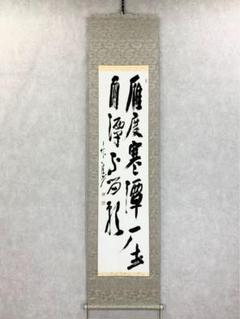 雁度寒潭々去
而潭不留影